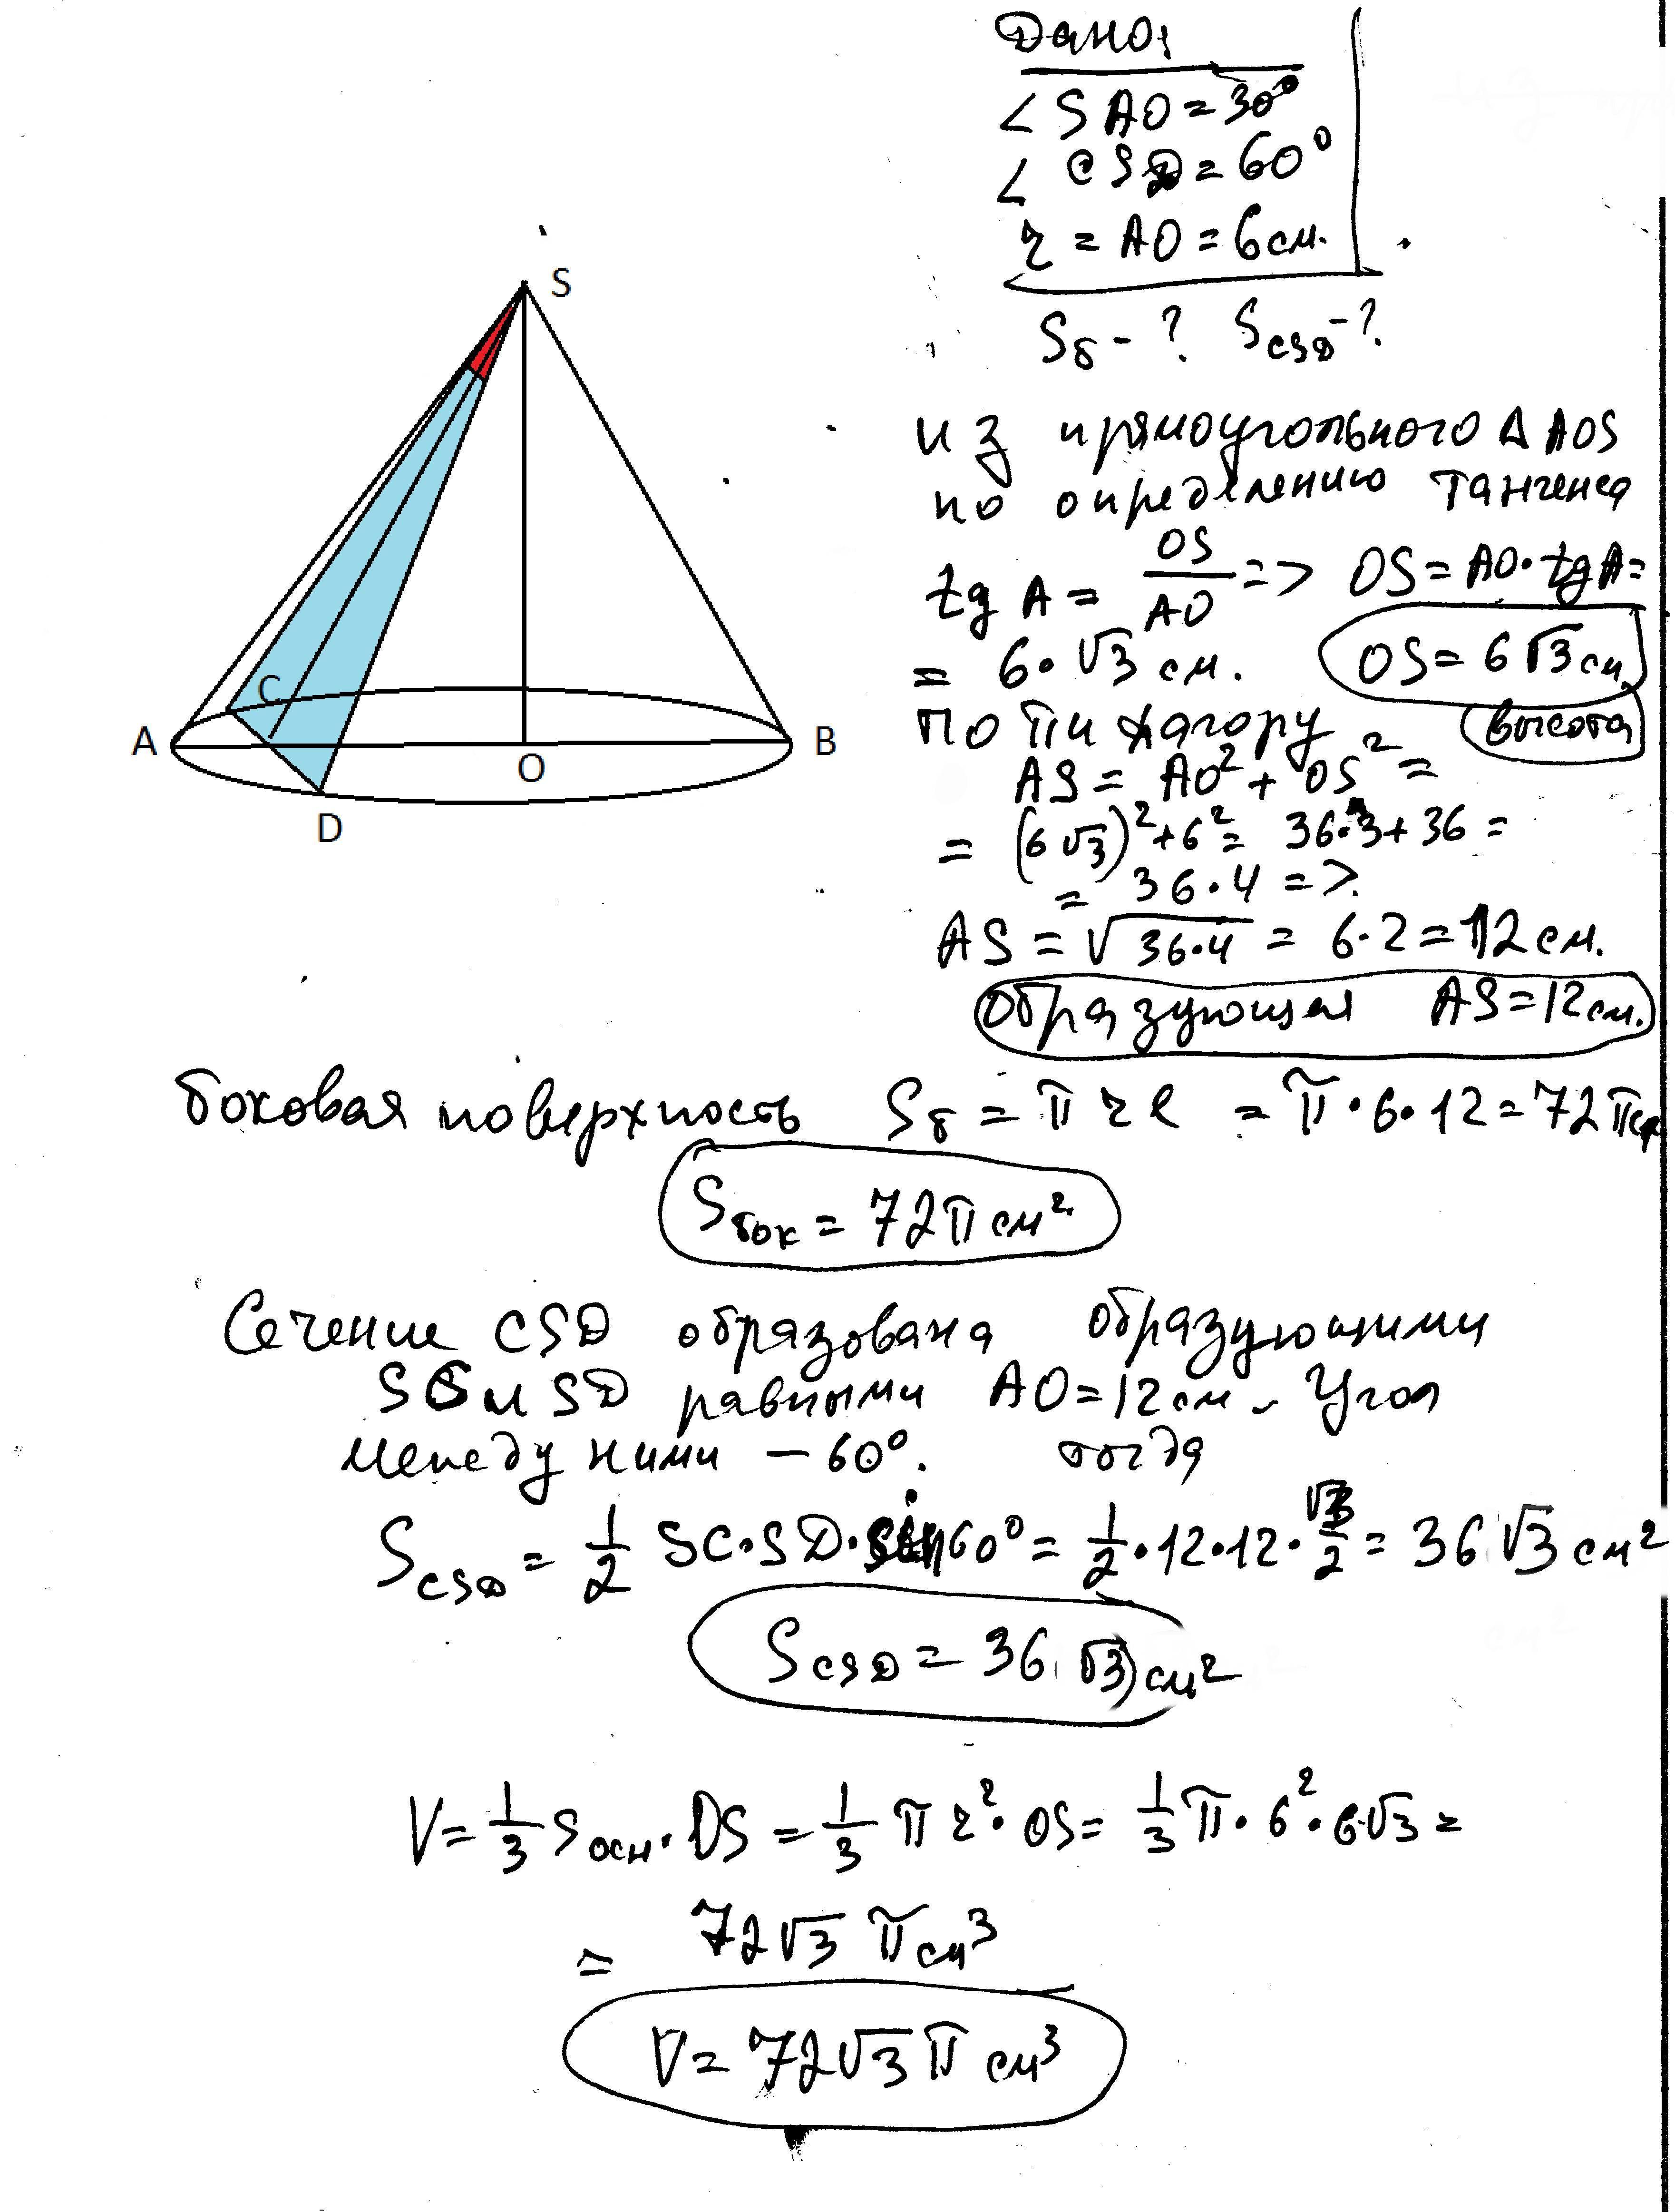 Дано:
∠SAO = 30°
∠CSD = 60°
r = AO = 6 см.
Sб - ? SCSD - ?
S
C
A
B
O
D
из прямоугольного Δ AOS
по определению тангенса
tg A = OS/AO => OS = AO·tg A =
= 6·√3 см. OS = 6√3 см
высота
по Пифагору
AS = AO² + OS² =
= (6√3)² + 6² = 36·3 + 36 =
= 36·4 =>
AS = √36·4 = 6·2 = 12 см.
Образующая AS = 12 см.
боковая поверхность Sб = π r l = π·6·12 = 72π
Sбок = 72π см²
Сечение CSD образована образующими
SC и SD равными AO = 12 см. Угол
между ними – 60°. тогда
SCSD = 1/2 SC·SD·sin 60° = 1/2·12·12·√3/2 = 36√3 см²
SCSD = 36√3 см²
V = 1/3 Sосн·OS = 1/3 π r²·OS = 1/3 π·6²·6√3 =
= 72√3 π см³
V = 72√3 π см³